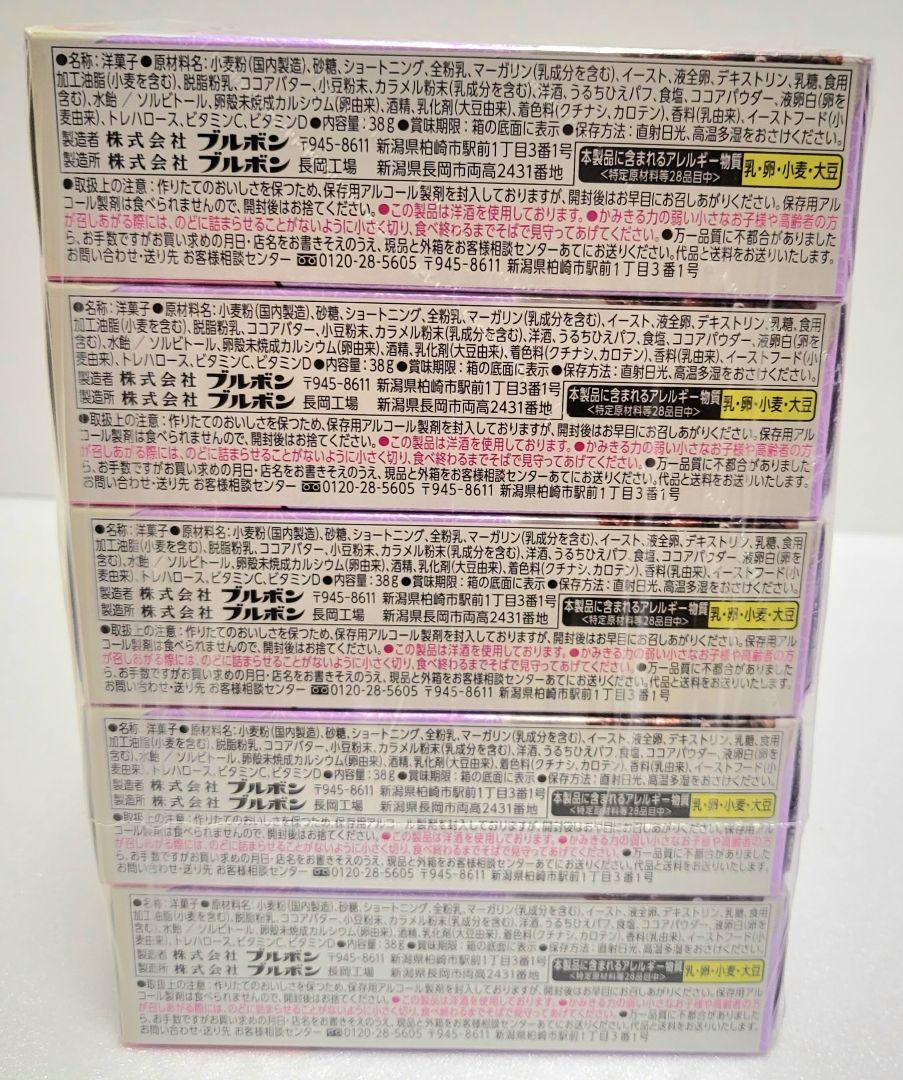 ●名称：洋菓子●原材料名：小麦粉(国内製造)、砂糖、ショートニング、全粉乳、マーガリン(乳成分を含む)、イースト、液全卵、デキストリン、乳糖、食用
加工油脂(小麦を含む)、脱脂粉乳、ココアバター、小豆粉末、カラメル粉末(乳成分を含む)、洋酒、うるちひえパフ、食塩、ココアパウダー、液卵白(卵を
含む)、水飴／ソルビトール、卵殻未焼成カルシウム(卵由来)、酒精、乳化剤(大豆由来)、着色料(クチナシ、カロテン)、香料(乳由来)、イーストフード(小
麦由来)、トレハロース、ビタミンC、ビタミンD●内容量：38g●賞味期限：箱の底面に表示●保存方法：直射日光、高温多湿をおさけください。
製造者 株式会社 ブルボン 〒945-8611 新潟県柏崎市駅前1丁目3番1号
製造所 株式会社 ブルボン 長岡工場 新潟県長岡市両高2431番地
本製品に含まれるアレルギー物質
<特定原材料等28品目中>
乳・卵・小麦・大豆
●取扱上の注意：作りたてのおいしさを保つため、保存用アルコール製剤を封入しておりますが、開封後はお早目にお召しあがりください。保存用アル
コール製剤は食べられませんので、開封後はお捨てください。●この製品は洋酒を使用しております。●かみきる力の弱い小さなお子様や高齢者の方
が召しあがる際には、のどに詰まらせることがないように小さく切り、食べ終わるまでそばで見守ってあげてください。●万一品質に不都合がありました
ら、お手数ですがお買い求めの月日・店名をお書きそえのうえ、現品と外箱をお客様相談センターあてにお送りください。代品と送料をお送りいたします。
お問い合わせ・送り先 お客様相談センター 0120-28-5605 〒945-8611 新潟県柏崎市駅前1丁目3番1号
●名称：洋菓子●原材料名：小麦粉(国内製造)、砂糖、ショートニング、全粉乳、マーガリン(乳成分を含む)、イースト、液全卵、デキストリン、乳糖、食用
加工油脂(小麦を含む)、脱脂粉乳、ココアバター、小豆粉末、カラメル粉末(乳成分を含む)、洋酒、うるちひえパフ、食塩、ココアパウダー、液卵白(卵を
含む)、水飴／ソルビトール、卵殻未焼成カルシウム(卵由来)、酒精、乳化剤(大豆由来)、着色料(クチナシ、カロテン)、香料(乳由来)、イーストフード(小
麦由来)、トレハロース、ビタミンC、ビタミンD●内容量：38g●賞味期限：箱の底面に表示●保存方法：直射日光、高温多湿をおさけください。
製造者 株式会社 ブルボン 〒945-8611 新潟県柏崎市駅前1丁目3番1号
製造所 株式会社 ブルボン 長岡工場 新潟県長岡市両高2431番地
本製品に含まれるアレルギー物質
<特定原材料等28品目中>
乳・卵・小麦・大豆
●取扱上の注意：作りたてのおいしさを保つため、保存用アルコール製剤を封入しておりますが、開封後はお早目にお召しあがりください。保存用アル
コール製剤は食べられませんので、開封後はお捨てください。●この製品は洋酒を使用しております。●かみきる力の弱い小さなお子様や高齢者の方
が召しあがる際には、のどに詰まらせることがないように小さく切り、食べ終わるまでそばで見守ってあげてください。●万一品質に不都合がありました
ら、お手数ですがお買い求めの月日・店名をお書きそえのうえ、現品と外箱をお客様相談センターあてにお送りください。代品と送料をお送りいたします。
お問い合わせ・送り先 お客様相談センター 0120-28-5605 〒945-8611 新潟県柏崎市駅前1丁目3番1号
●名称：洋菓子●原材料名：小麦粉(国内製造)、砂糖、ショートニング、全粉乳、マーガリン(乳成分を含む)、イースト、液全卵、デキストリン、乳糖、食用
加工油脂(小麦を含む)、脱脂粉乳、ココアバター、小豆粉末、カラメル粉末(乳成分を含む)、洋酒、うるちひえパフ、食塩、ココアパウダー、液卵白(卵を
含む)、水飴／ソルビトール、卵殻未焼成カルシウム(卵由来)、酒精、乳化剤(大豆由来)、着色料(クチナシ、カロテン)、香料(乳由来)、イーストフード(小
麦由来)、トレハロース、ビタミンC、ビタミンD●内容量：38g●賞味期限：箱の底面に表示●保存方法：直射日光、高温多湿をおさけください。
製造者 株式会社 ブルボン 〒945-8611 新潟県柏崎市駅前1丁目3番1号
製造所 株式会社 ブルボン 長岡工場 新潟県長岡市両高2431番地
本製品に含まれるアレルギー物質
<特定原材料等28品目中>
乳・卵・小麦・大豆
●取扱上の注意：作りたてのおいしさを保つため、保存用アルコール製剤を封入しておりますが、開封後はお早目にお召しあがりください。保存用アル
コール製剤は食べられませんので、開封後はお捨てください。●この製品は洋酒を使用しております。●かみきる力の弱い小さなお子様や高齢者の方
が召しあがる際には、のどに詰まらせることがないように小さく切り、食べ終わるまでそばで見守ってあげてください。●万一品質に不都合がありました
ら、お手数ですがお買い求めの月日・店名をお書きそえのうえ、現品と外箱をお客様相談センターあてにお送りください。代品と送料をお送りいたします。
お問い合わせ・送り先 お客様相談センター 0120-28-5605 〒945-8611 新潟県柏崎市駅前1丁目3番1号
●名称 洋菓子●原材料名：小麦粉(国内製造)、砂糖、ショートニング、全粉乳、マーガリン(乳成分を含む)、イースト、液全卵、デキストリン、乳糖、食用
加工油脂(小麦を含む)、脱脂粉乳、ココアバター、小豆粉末、カラメル粉末(乳成分を含む)、洋酒、うるちひえパフ、食塩、ココアパウダー、液卵白(卵を
含む)、水飴／ソルビトール、卵殻未焼成カルシウム(卵由来)、酒精、乳化剤(大豆由来)、着色料(クチナシ、カロテン)、香料(乳由来)、イーストフード(小
麦由来)、トレハロース、ビタミンC、ビタミンD●内容量：38g●賞味期限：箱の底面に表示●保存方法：直射日光、高温多湿をおさけください。
製造者 株式会社 ブルボン 〒945-8611 新潟県柏崎市駅前1丁目3番1号
製造所 株式会社 ブルボン 長岡工場 新潟県長岡市両高2431番地
本製品に含まれるアレルギー物質
<特定原材料等28品目中>
乳・卵・小麦・大豆
●取扱上の注意：作りたてのおいしさを保つため、保存用アルコール製剤を封入しておりますが、開封後はお早目にお召しあがりください。保存用アル
コール製剤は食べられませんので、開封後はお捨てください。●この製品は洋酒を使用しております。●かみきる力の弱い小さなお子様や高齢者の方
が召しあがる際には、のどに詰まらせることがないように小さく切り、食べ終わるまでそばで見守ってあげてください。●万一品質に不都合がありました
ら、お手数ですがお買い求めの月日・店名をお書きそえのうえ、現品と外箱をお客様相談センターあてにお送りください。代品と送料をお送りいたします。
お問い合わせ・送り先 お客様相談センター 0120-28-5605 〒945-8611 新潟県柏崎市駅前1丁目3番1号
●名称：洋菓子●原材料名：小麦粉(国内製造)、砂糖、ショートニング、全粉乳、マーガリン(乳成分を含む)、イースト、液全卵、デキストリン、乳糖、食用
加工油脂(小麦を含む)、脱脂粉乳、ココアバター、小豆粉末、カラメル粉末(乳成分を含む)、洋酒、うるちひえパフ、食塩、ココアパウダー、液卵白(卵を
含む)、水飴／ソルビトール、卵殻未焼成カルシウム(卵由来)、酒精、乳化剤(大豆由来)、着色料(クチナシ、カロテン)、香料(乳由来)、イーストフード(小
麦由来)、トレハロース、ビタミンC、ビタミンD●内容量：38g●賞味期限：箱の底面に表示●保存方法：直射日光、高温多湿をおさけください。
製造者 株式会社 ブルボン 〒945-8611 新潟県柏崎市駅前1丁目3番1号
製造所 株式会社 ブルボン 長岡工場 新潟県長岡市両高2431番地
本製品に含まれるアレルギー物質
<特定原材料等28品目中>
乳・卵・小麦・大豆
●取扱上の注意：作りたてのおいしさを保つため、保存用アルコール製剤を封入しておりますが、開封後はお早目にお召しあがりください。保存用アル
コール製剤は食べられませんので、開封後はお捨てください。●この製品は洋酒を使用しております。●かみきる力の弱い小さなお子様や高齢者の方
が召しあがる際には、のどに詰まらせることがないように小さく切り、食べ終わるまでそばで見守ってあげてください。●万一品質に不都合がありました
ら、お手数ですがお買い求めの月日・店名をお書きそえのうえ、現品と外箱をお客様相談センターあてにお送りください。代品と送料をお送りいたします。
お問い合わせ・送り先 お客様相談センター 0120-28-5605 〒945-8611 新潟県柏崎市駅前1丁目3番1号